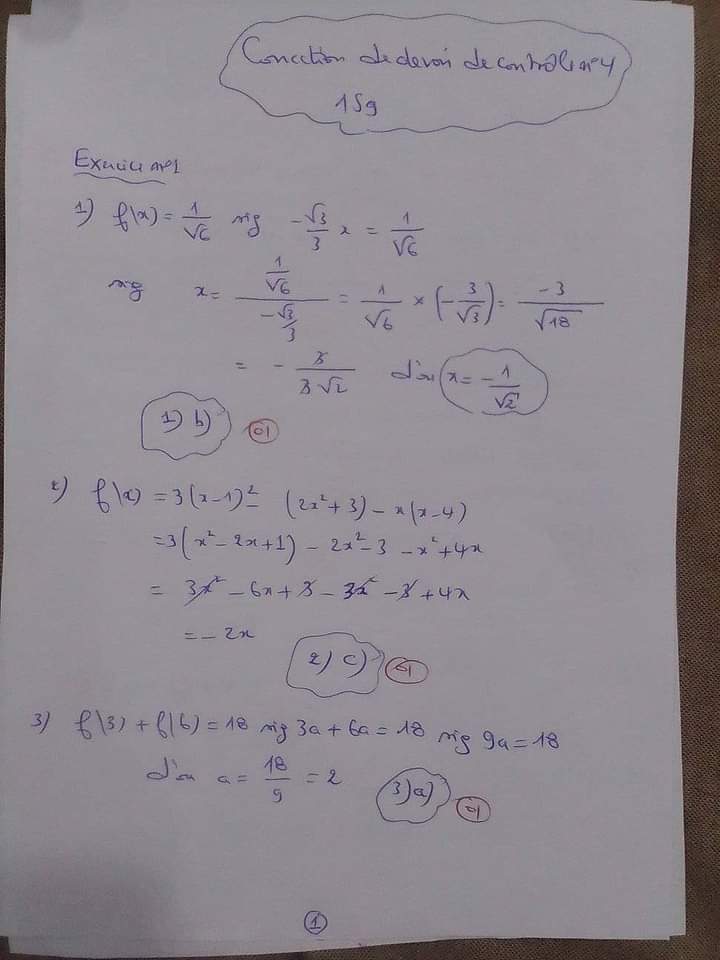 Correction de devoir de contrôle n°4
1Sg
Exercice n°1
1) f(x) = 1/√6 sig -√3/3 x = 1/√6
sig x = (1/√6)/(-√3/3) = 1/√6 × (-3/√3) = -3/√18
= - 3/(3√2) d'où x = -1/√2
1) b) 01
2) f(x) = 3(x-1)² - (2x²+3) - x(x-4)
= 3(x² - 2x + 1) - 2x² - 3 - x² + 4x
= 3x² - 6x + 3 - 3x² - 3 + 4x
= - 2x
2) c) 01
3) f(3) + f(6) = 18 sig 3a + 6a = 18 sig 9a = 18
d'où a = 18/9 = 2 3) a) 01
1